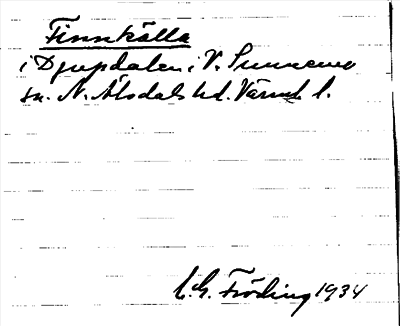 Finnkälla
i Djupdalen i V. Sunnemo
sn. N. Älvdals hd. Värml l.
C.G. Fröding 1934